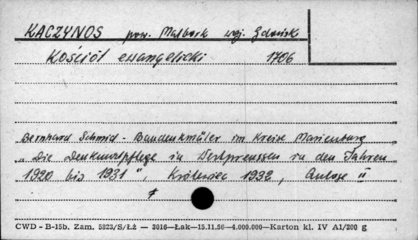 KACZYNOS pow. Malbork woj. Gdańsk
Kościół ewangelicki 1706
Bernhard Schmid - Baudenkmäler im Kreise Marienburg
"Die Denkmalpflege in Westpreussen in den Jahren
1920 bis 1931", Królewiec 1932,
CWD - B-15b. Zam. 5823/S/Łż — 3016—Łak—15.11.56—4.000.000—Karton kl. IV A1/200 g